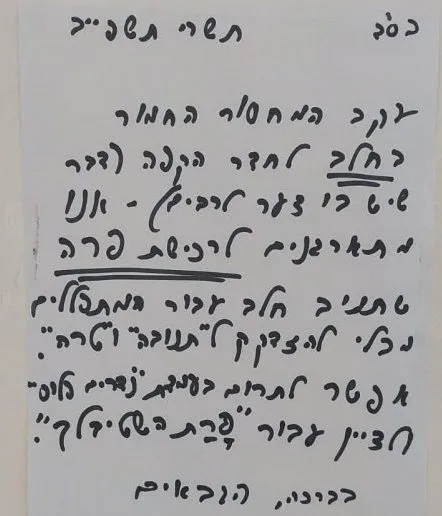 בס"ד תשרי תשפ"ב
עקב המחסור החמור
בחלב לחדר הקפה (דבר
שיש בו צער לרבים) - אנו
מתארגנים לרכישת פרה
שתניב חלב עבור המתפללים
מבלי להצדקק ל"תנובה" ו"טרה".
אפשר לתרום בעמדת "נדרים פלוס"
לציין עבור "פָּרַת השטיבלך".
בברכה, הגבאים